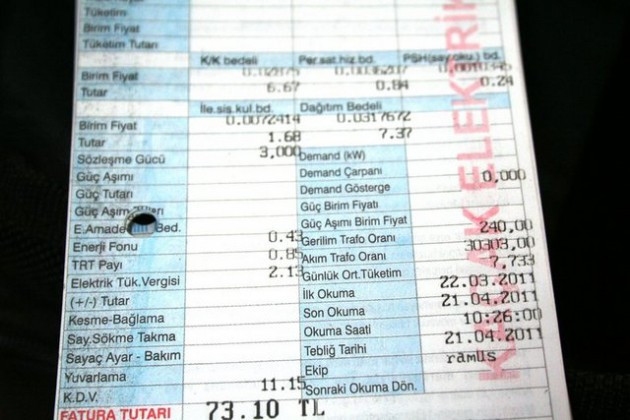 Tüketim
Birim Fiyat
Tüketim Tutarı
K/K bedeli Per.sat.hiz.bd. PSH(say.oku.) bd.
Birim Fiyat
Tutar 6.67 0.84 0.24
İle.sis.kul.bd. Dağıtım Bedeli
Birim Fiyat 0.0072414 0.0317672
Tutar 1.68 7.37
Sözleşme Gücü 3,000 Demand (kW)
Güç Aşımı Demand Çarpanı 0,000
Güç Tutarı Demand Gösterge
Güç Aşım Güç Birim Fiyatı
E.Amade Bed. Güç Aşımı Birim Fiyat
Enerji Fonu 0.43 Gerilim Trafo Oranı 240,00
TRT Payı 0.85 Akım Trafo Oranı 30303,00
Elektrik Tük.Vergisi 2.13 Günlük Ort.Tüketim 7,733
(+/-) Tutar İlk Okuma 22.03.2011
Kesme-Bağlama Son Okuma 21.04.2011
Say.Sökme Takma Okuma Saati 10:26:00
Sayaç Ayar - Bakım Tebliğ Tarihi 21.04.2011
Yuvarlama Ekip ramüs
K.D.V. 11.15 Sonraki Okuma Dön.
FATURA TUTARI 73.10 TL
AK ELEKTRİK